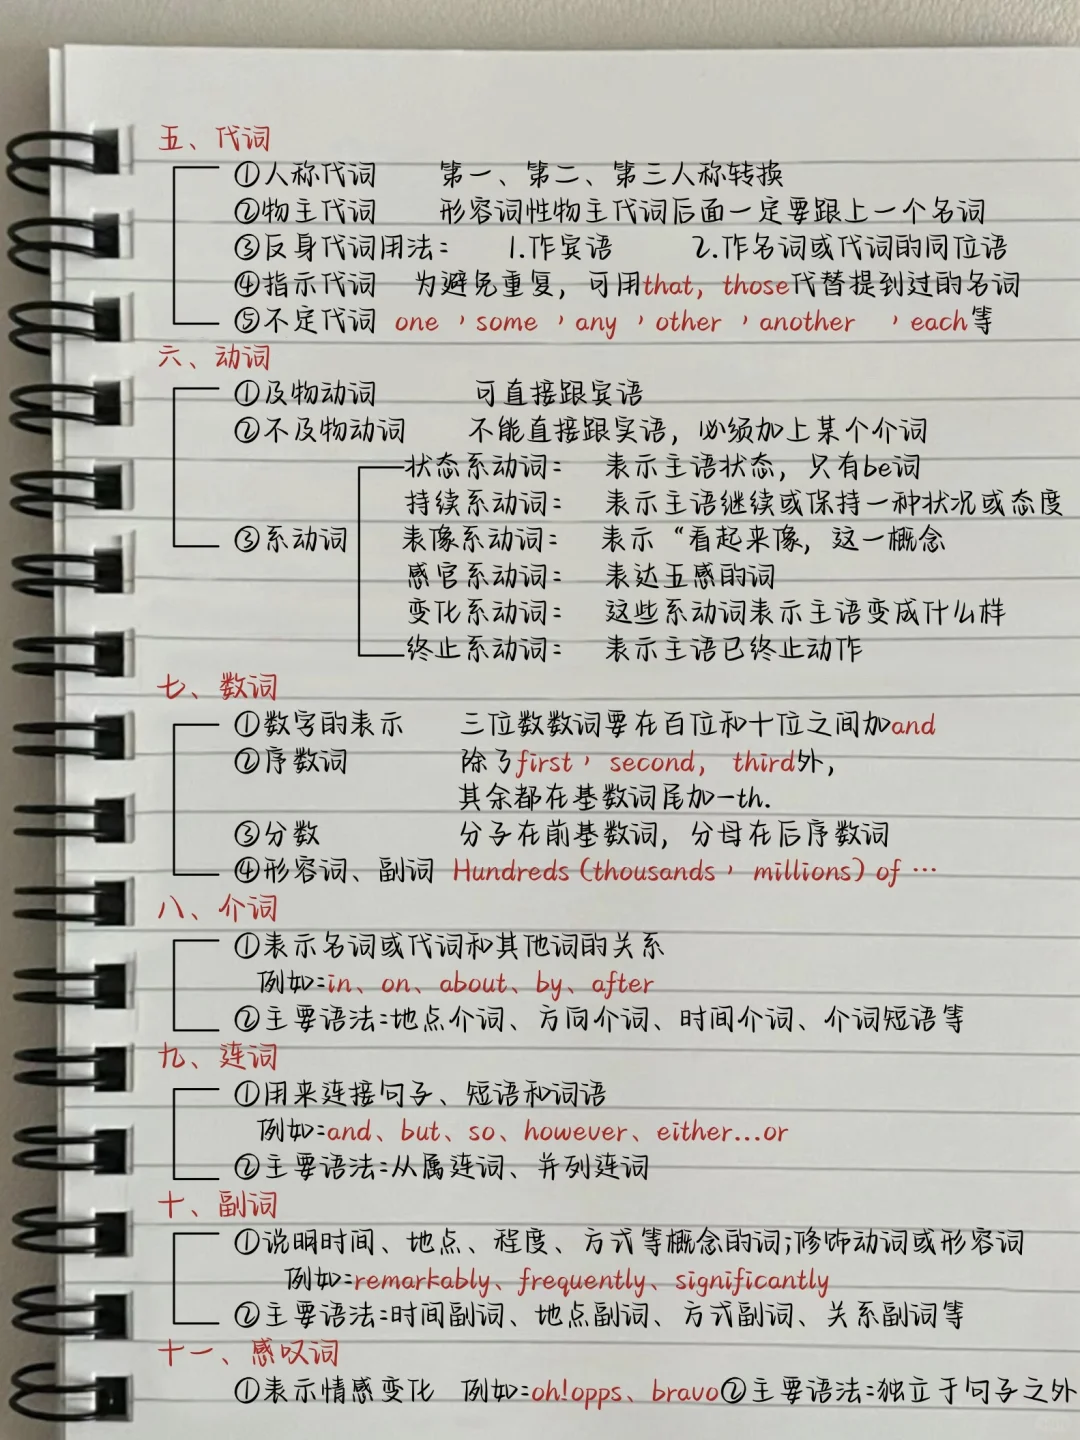 五、代词
①人称代词 第一、第二、第三人称转换
②物主代词 形容词性物主代词后面一定要跟上一个名词
③反身代词用法： 1.作宾语 2.作名词或代词的同位语
④指示代词 为避免重复，可用that，those代替提到过的名词
⑤不定代词 one，some，any，other，another，each等
六、动词
①及物动词 可直接跟宾语
②不及物动词 不能直接跟宾语，必须加上某个介词
状态系动词： 表示主语状态，只有be词
持续系动词： 表示主语继续或保持一种状况或态度
③系动词 表像系动词： 表示“看起来像，这一概念
感官系动词： 表达五感的词
变化系动词： 这些系动词表示主语变成什么样
终止系动词： 表示主语已终止动作
七、数词
①数字的表示 三位数数词要在百位和十位之间加and
②序数词 除了first，second，third外，
其余都在基数词尾加-th.
③分数 分子在前基数词，分母在后序数词
④形容词、副词 Hundreds (thousands，millions) of …
八、介词
①表示名词或代词和其他词的关系
例如:in、on、about、by、after
②主要语法:地点介词、方向介词、时间介词、介词短语等
九、连词
①用来连接句子、短语和词语
例如:and、but、so、however、either...or
②主要语法:从属连词、并列连词
十、副词
①说明时间、地点、程度、方式等概念的词;修饰动词或形容词
例如:remarkably、frequently、significantly
②主要语法:时间副词、地点副词、方式副词、关系副词等
十一、感叹词
①表示情感变化 例如:oh!opps、bravo②主要语法:独立于句子之外